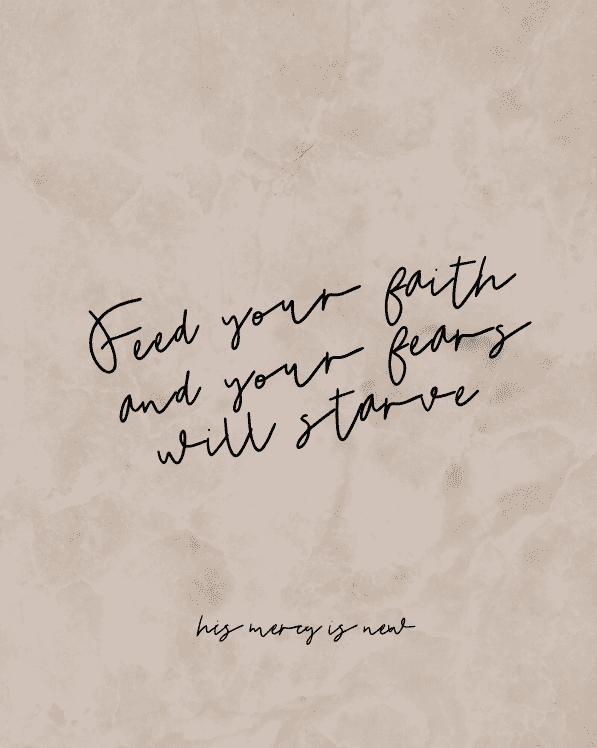 Feed your faith
and your fears
will starve
his mercy is new